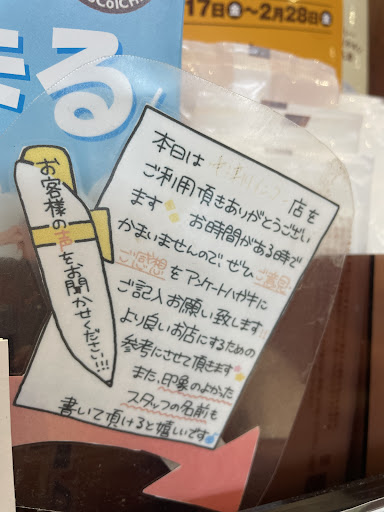 17日金〜2月28日金
える
お客様の声をお聞かせください!!!
本日は 店を
ご利用頂きありがとうござい
ます お時間がある時で
かまいませんので、ぜひ、ご意見
ご感想をアンケートハガキに
ご記入お願い致します!!
より良いお店にするための
参考にさせて頂きます
また、印象のよかった
スタッフの名前も
書いて頂けると嬉しいです